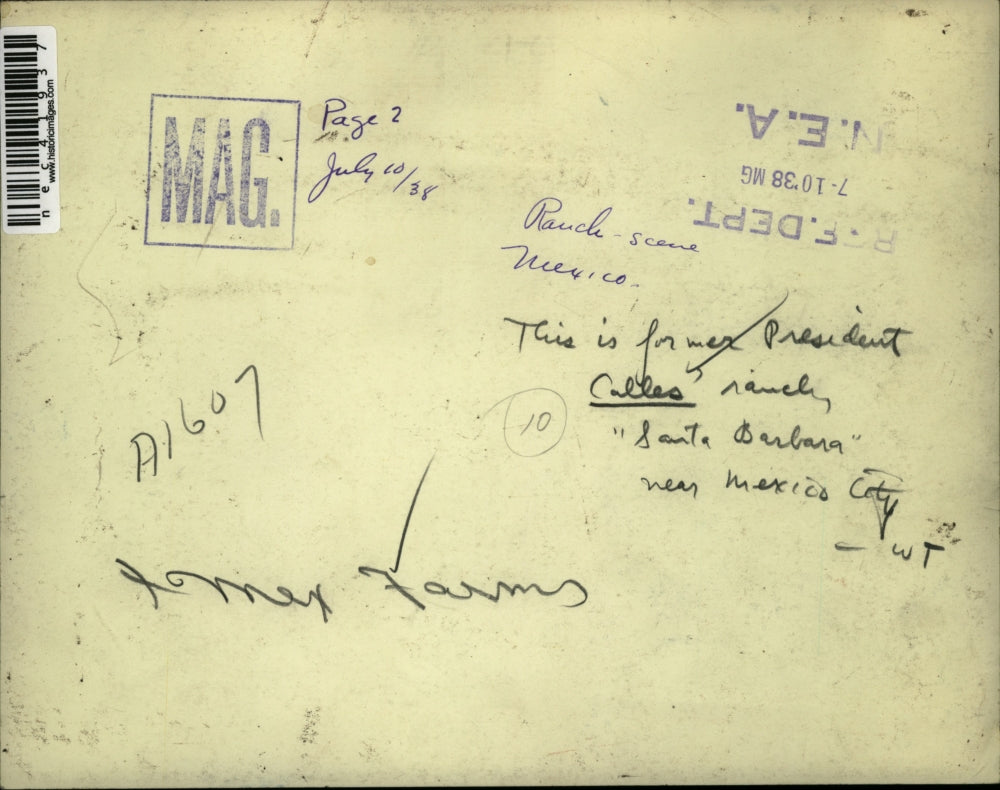 nec41937
www.historicimages.com
MAG.
Page 2
July 10/38
N.E.A.
7-10'38 MG
R.F. DEPT.
Ranch-scene
Mexico.
This is former President
Calles' ranch,
"Santa Barbara"
near Mexico City
- WT
10
A1607
Mex Farms